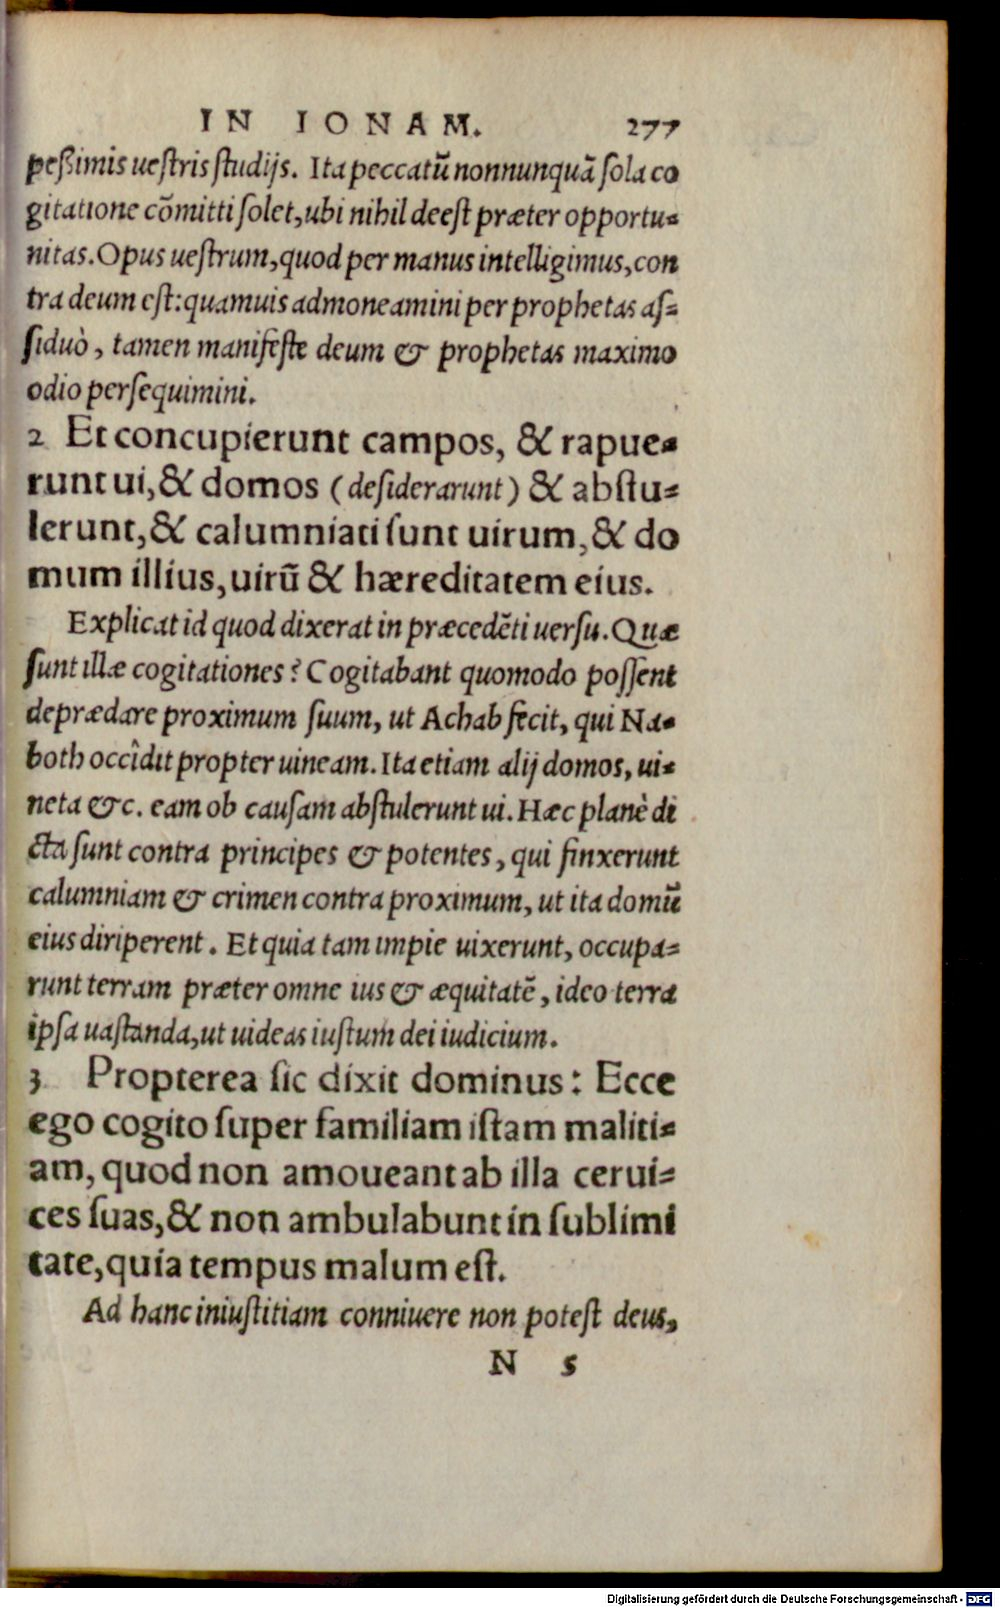 IN IONAM. 277
peßimis uestris studijs. Ita peccatū nonnunquā sola co
gitatione cōmitti solet, ubi nihil deest præter opportu-
nitas. Opus uestrum, quod per manus intelligimus, con
tra deum est: quamuis admoneamini per prophetas as-
siduò, tamen manifeste deum & prophetas maximo
odio persequimini.
2 Et concupierunt campos, & rapue-
runt ui, & domos (desiderarunt) & abstu-
lerunt, & calumniati sunt uirum, & do
mum illius, uirū & hæreditatem eius.
Explicat id quod dixerat in præcedēti uersu. Quæ
sunt illæ cogitationes? Cogitabant quomodo possent
deprædare proximum suum, ut Achab fecit, qui Na-
both occîdit propter uineam. Ita etiam alij domos, ui-
neta &c. eam ob causam abstulerunt ui. Hæc planè di
cta sunt contra principes & potentes, qui finxerunt
calumniam & crimen contra proximum, ut ita domū
eius diriperent. Et quia tam impie uixerunt, occupa-
runt terram præter omne ius & æquitatē, ideo terra
ipsa uastanda, ut uideas iustum dei iudicium.
3 Propterea sic dixit dominus: Ecce
ego cogito super familiam istam maliti-
am, quod non amoueant ab illa cerui-
ces suas, & non ambulabunt in sublimi
tate, quia tempus malum est.
Ad hanc iniustitiam conniuere non potest deus,
N 5
Digitalisierung gefördert durch die Deutsche Forschungsgemeinschaft - DFG